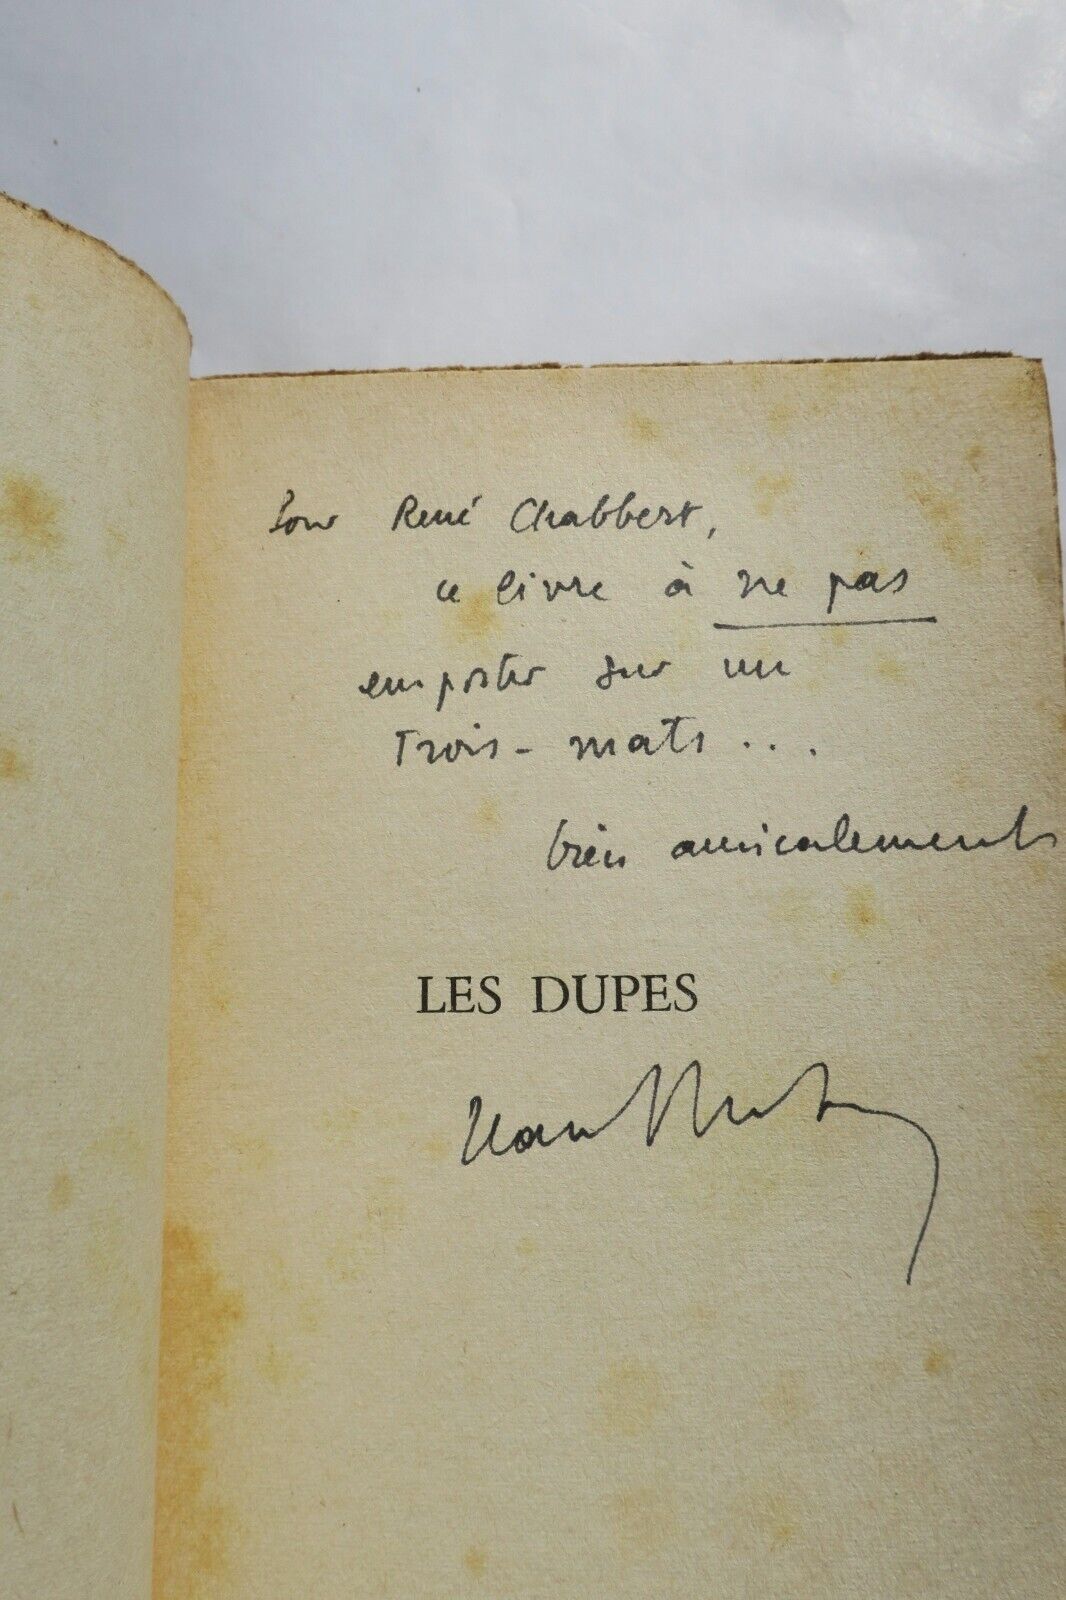 Pour René Chabbert,
ce livre à ne pas
emporter sur un
Trois-mats...
bien amicalement
LES DUPES
Jean Dutourd